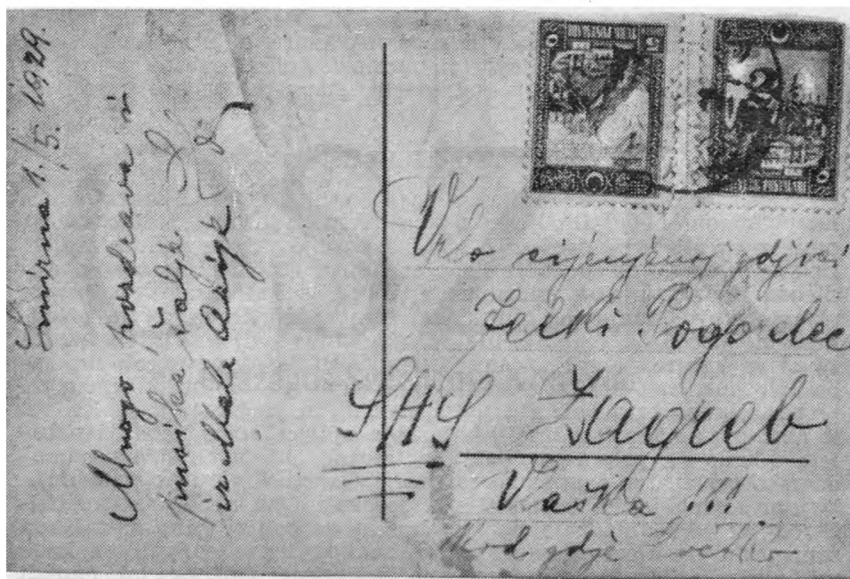 Smirna 1./5. 1929.
Mnogo pozdrava i
pusika šalje
iz Male Azije
Vrlo cijenjenoj gdjici
Jelki Pogorelec
SHS Zagreb
Vlaška !!!
kod gdje